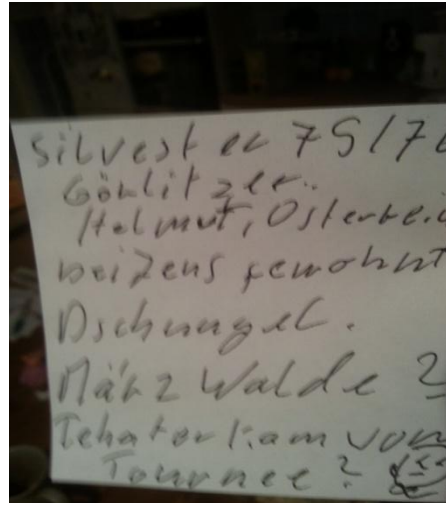 Silvester 75/7
Görlitzer..
Helmut, Österrei
bei Jens gewohnt
Dschungel.
März Walde ?
Tehater kam von
Tournee?